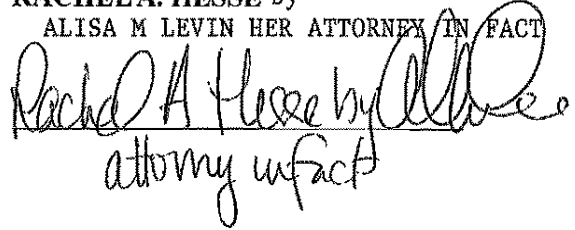 RACHEL A. HESSE by
ALISA M LEVIN HER ATTORNEY IN FACT
Rachel A Hesse by
attorny in fact